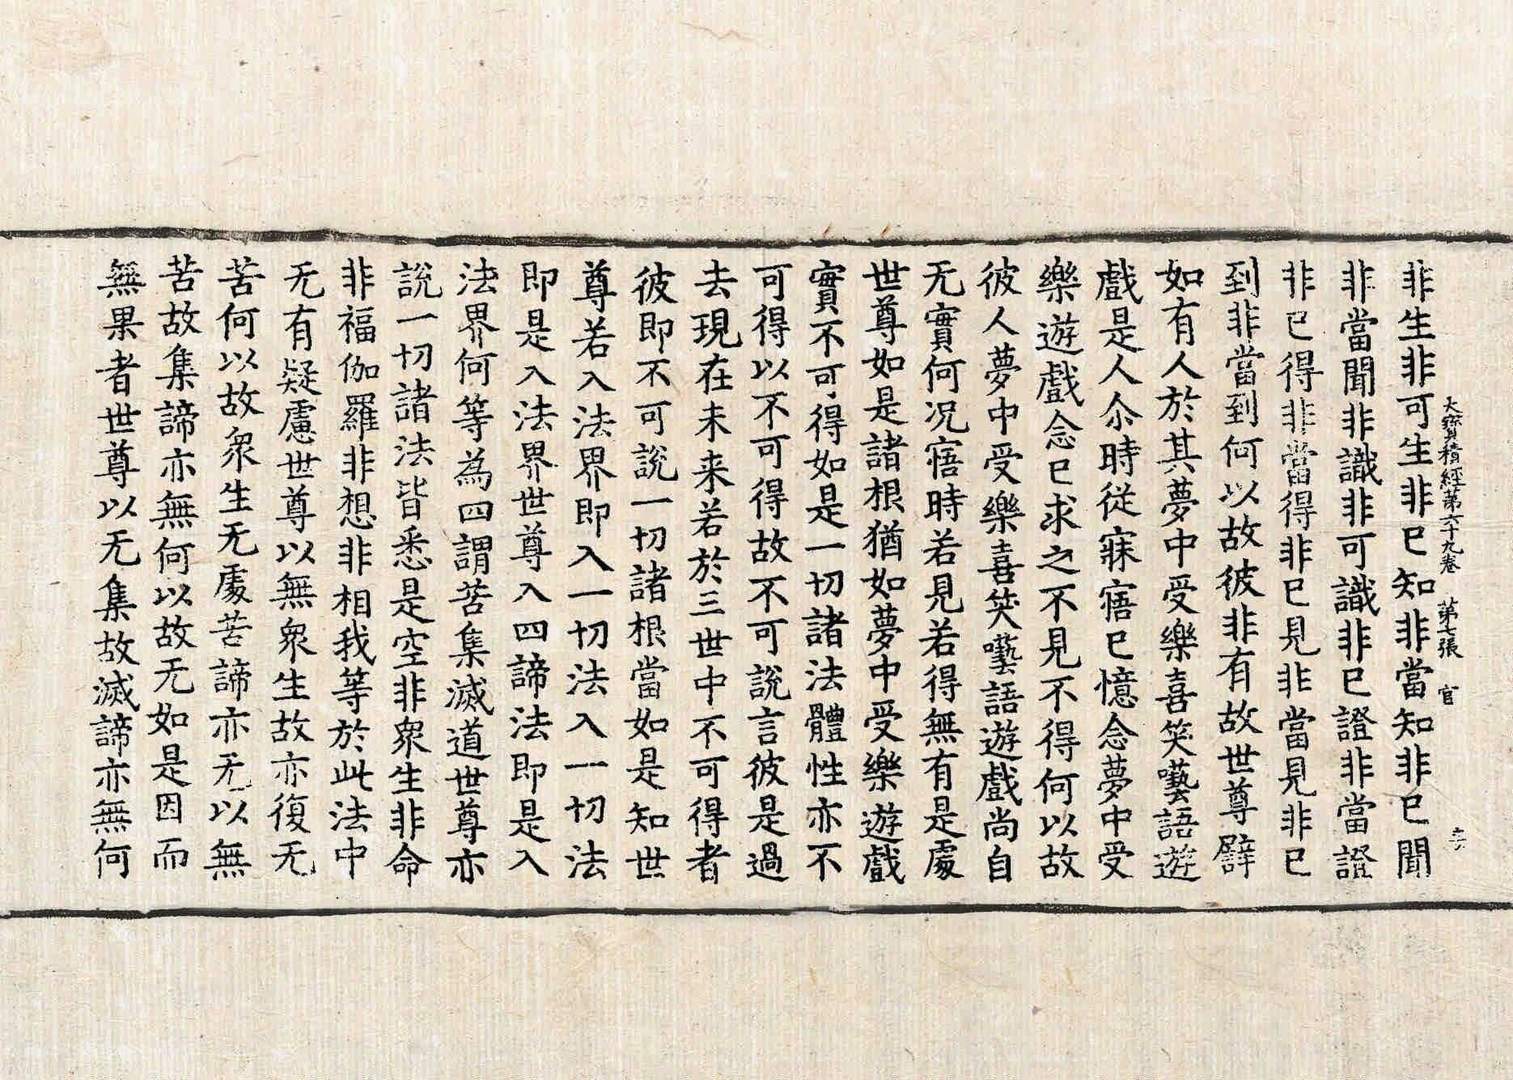 大寶積經第六十九卷 第七張 官
非生非可生非已知非當知非已聞
非當聞非識非可識非已證非當證
非已得非當得非已見非當見非已
到非當到何以故彼非有故世尊譬
如有人於其夢中受樂喜笑囈語遊
戲是人尒時從寐寤已憶念夢中受
樂遊戲念已求之不見不得何以故
彼人夢中受樂喜笑囈語遊戲尚自
无實何況寤時若見若得無有是處
世尊如是諸根猶如夢中受樂遊戲
實不可得如是一切諸法體性亦不
可得以不可得故不可說言彼是過
去現在未来若於三世中不可得者
彼即不可說一切諸根當如是知世
尊若入法界即入一切法入一切法
即是入法界世尊入四諦法即是入
法界何等為四謂苦集滅道世尊亦
說一切諸法皆悉是空非衆生非命
非福伽羅非想非相我等於此法中
无有疑慮世尊以無衆生故亦復无
苦何以故衆生无處苦諦亦无以無
苦故集諦亦無何以故无如是因而
無果者世尊以无集故滅諦亦無何